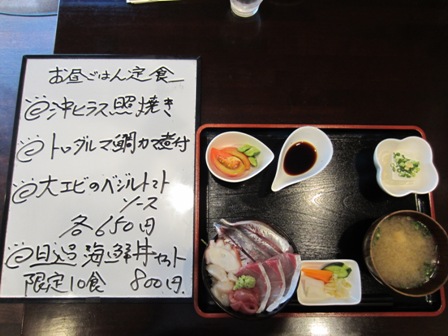 お昼ごはん定食
@沖ヒラス照焼き
@トロダルマ鯛カマ煮付
@大エビのベジルトマト
ソース
各650円
@日込 海鮮丼セット
限定10食 800円